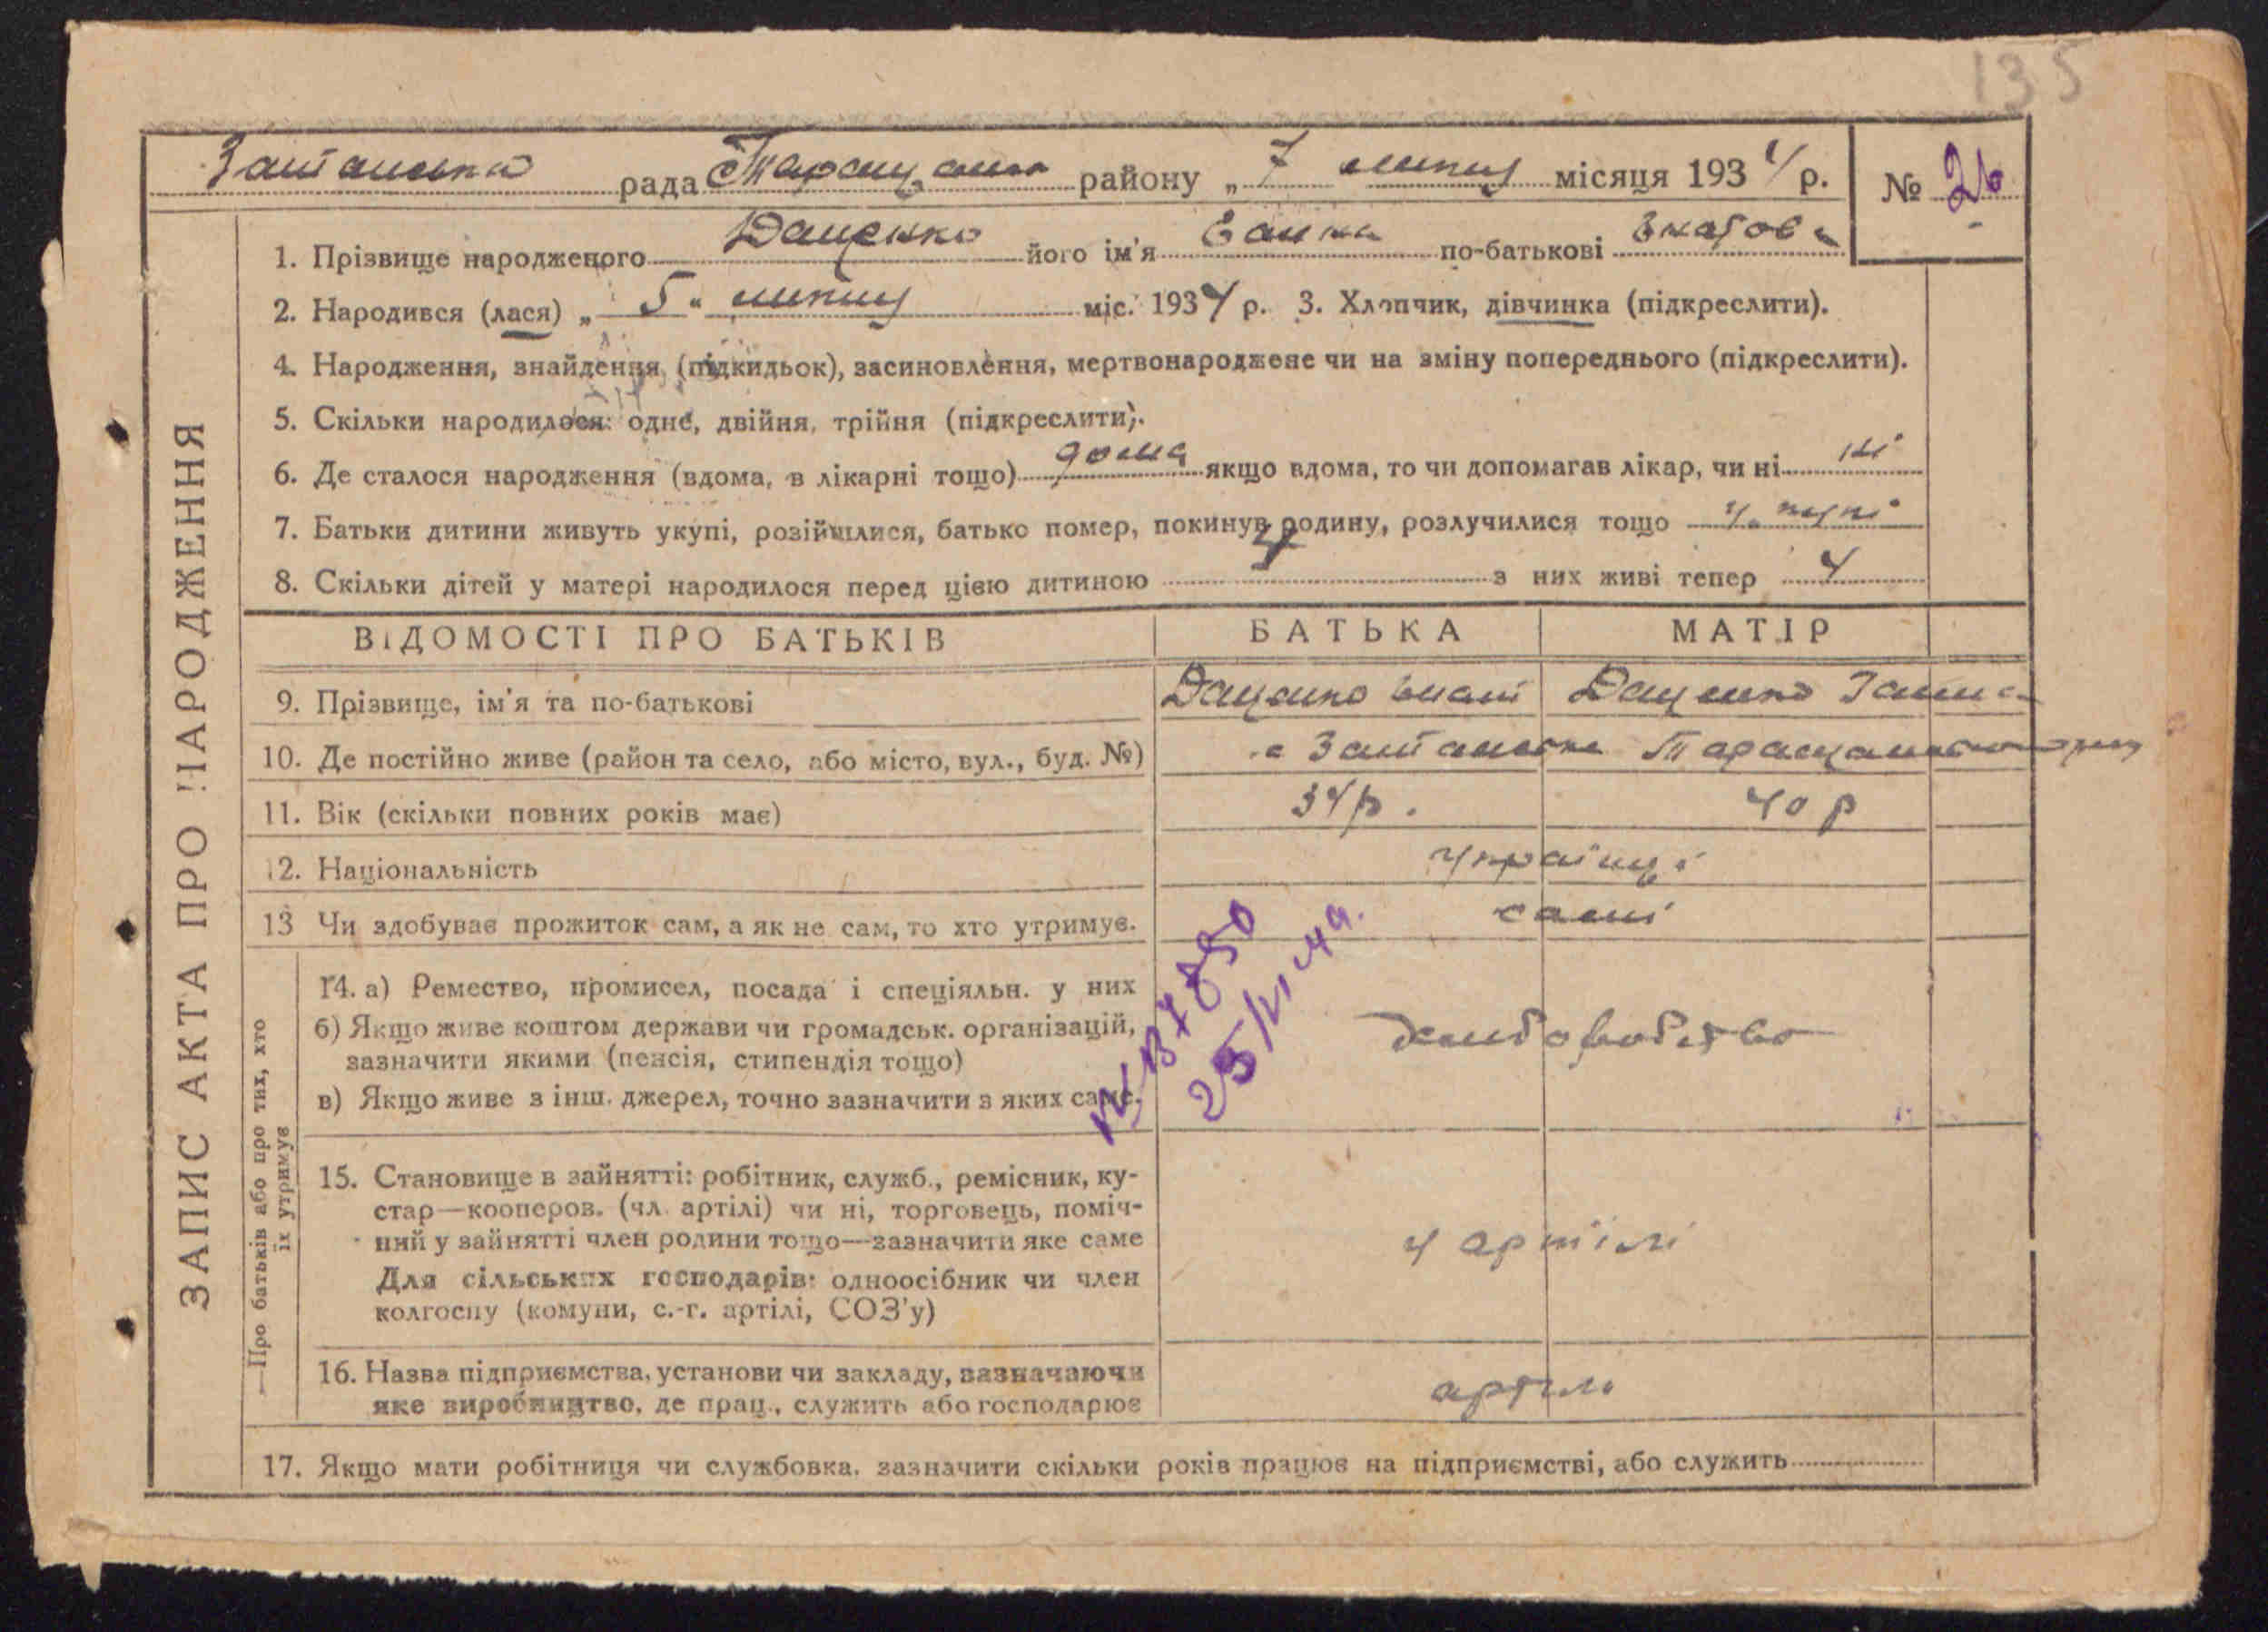 135
рада Таращанськ району „ 7 липня місяця 1934 р. № 26
1. Прізвище народженого Даценко його ім'я по-батькові
2. Народився (лася) „ 5 “ липня міс. 1934 р. 3. Хлопчик, дівчинка (підкреслити).
4. Народження, знайдення (підкидьок), засиновлення, мертвонароджене чи на зміну попереднього (підкреслити).
5. Скільки народилося: одне, двійня, трійня (підкреслити).
6. Де сталося народження (вдома, в лікарні тощо) дома якщо вдома, то чи допомагав лікар, чи ні ні
7. Батьки дитини живуть укупі, розійшлися, батько помер, покинув родину, розлучилися тощо у купі
8. Скільки дітей у матері народилося перед цією дитиною 4 з них живі тепер 4
ЗАПИС АКТА ПРО НАРОДЖЕННЯ
ВІДОМОСТІ ПРО БАТЬКІВ БАТЬКА МАТІР
9. Прізвище, ім'я та по-батькові Даценко Гнат Даценко Ганна
10. Де постійно живе (район та село, або місто, вул., буд. №)
11. Вік (скільки повних років має) 34 р. 40 р
12. Національність українці
13 Чи здобуває прожиток сам, а як не сам, то хто утримує. самі
—Про батьків або про тих, хто
їх утримує
14. а) Ремество, промисел, посада і спеціяльн. у них
б) Якщо живе коштом держави чи громадськ. організацій,
зазначити якими (пенсія, стипендія тощо)
в) Якщо живе з інш. джерел, точно зазначити з яких саме.
хліборобство
15. Становище в зайнятті: робітник, служб., ремісник, ку-
стар—кооперов. (чл. артілі) чи ні, торговець, поміч-
ний у зайнятті член родини тощо—зазначити яке саме
Для сільських господарів: одноосібник чи член
колгоспу (комуни, с.-г. артілі, СОЗ'у)
у артілі
16. Назва підприємства, установи чи закладу, зазначаючи
яке виробництво, де прац., служить або господарює
артіль
17. Якщо мати робітниця чи службовка, зазначити скільки років працює на підприємстві, або служить